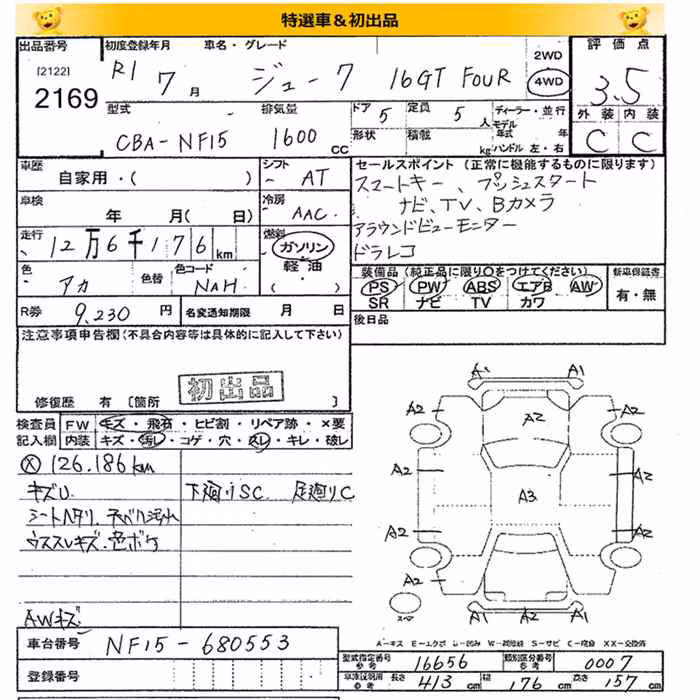 特選車＆初出品
出品番号 初度登録年月 車名・グレード 2WD 評価点
[2122] R1 7月 ジューク 16GT FOUR 4WD 3.5
2169
型式 排気量 ドア 5 定員 5人 ディーラー・並行 外装 内装
モデル
CBA-NF15 1600cc 形状 積載 kg 年式 年 C C
ハンドル 左・右
車歴 シフト セールスポイント (正常に機能するものに限ります)
自家用・( ) AT スマートキー、プッシュスタート
車検 冷房 ナビ、TV、Bカメラ
年 月(日) AAC アラウンドビューモニター
走行 燃料 ドラレコ
12万6千176km ガソリン
色 色替 色コード 軽油 装備品 (純正品に限り○をつけてください) 新車保証書
アカ NAH ( ) PS PW ABS エアB AW 有・無
SR ナビ TV カワ
R券 9,230円 名変通知期限 月 日 後日品
注意事項申告欄(不具合内容等は具体的に記入して下さい)
初出品
修復歴 有 [箇所
検査員 FW キズ・飛石・ヒビ割・リペア跡・×要
記入欄 内装 キズ・汚レ・コゲ・穴・スレ・キレ・破レ
A1 A1
A2 A2 A2
A2 A3 A2
A2 A2
A2
スペア A1 A2 A1
126.186km
キズU 下廻りSC 足廻りC
シートヘタリ
ウススレキズ・色ボケ
AWキズ
A-キズ E-エクボ
車台番号 NF15-680553
登録番号
型式指定番号 参考 16656 類別区分番号 参考 0007
参考 長さ 413cm 幅 176cm 高さ 157cm